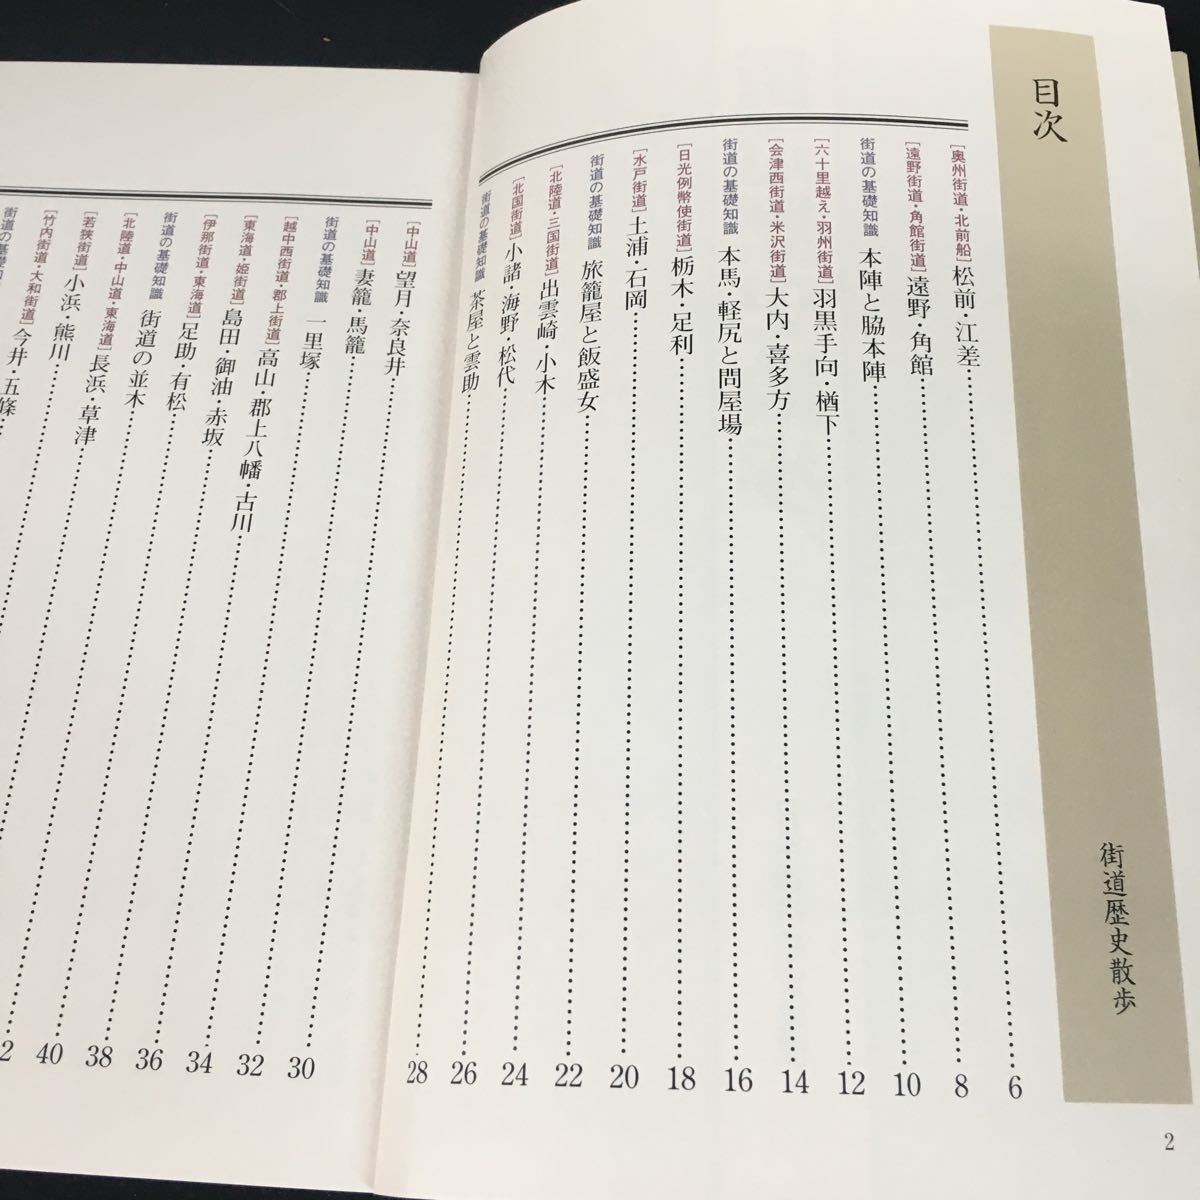 目次
街道歴史散歩
[奥州街道・北前船] 松前・江差 …… 6
[遠野街道・角館街道] 遠野・角館 …… 8
街道の基礎知識 本陣と脇本陣 …… 10
[六十里越え・羽州街道] 羽黒手向・楢下 …… 12
[会津西街道・米沢街道] 大内・喜多方 …… 14
街道の基礎知識 本馬・軽尻と問屋場 …… 16
[日光例幣使街道] 栃木・足利 …… 18
[水戸街道] 土浦・石岡 …… 20
街道の基礎知識 旅籠屋と飯盛女 …… 22
[北陸道・三国街道] 出雲崎・小木 …… 24
[北国街道] 小諸・海野・松代 …… 26
街道の基礎知識 茶屋と雲助 …… 28
2
[中山道] 望月・奈良井 …… 30
[中山道] 妻籠・馬籠 …… 32
街道の基礎知識 一里塚 …… 34
[越中西街道・郡上街道] 高山・郡上八幡・古川 …… 36
[東海道・姫街道] 島田・御油・赤坂 …… 38
[伊那街道・東海道] 足助・有松 …… 40
街道の基礎知識 街道の並木 …… 2
[北陸道・中山道・東海道] 長浜・草津 ……
[若狭街道] 小浜・熊川 ……
[竹内街道・大和街道] 今井・五條 ……
街道の基礎知識